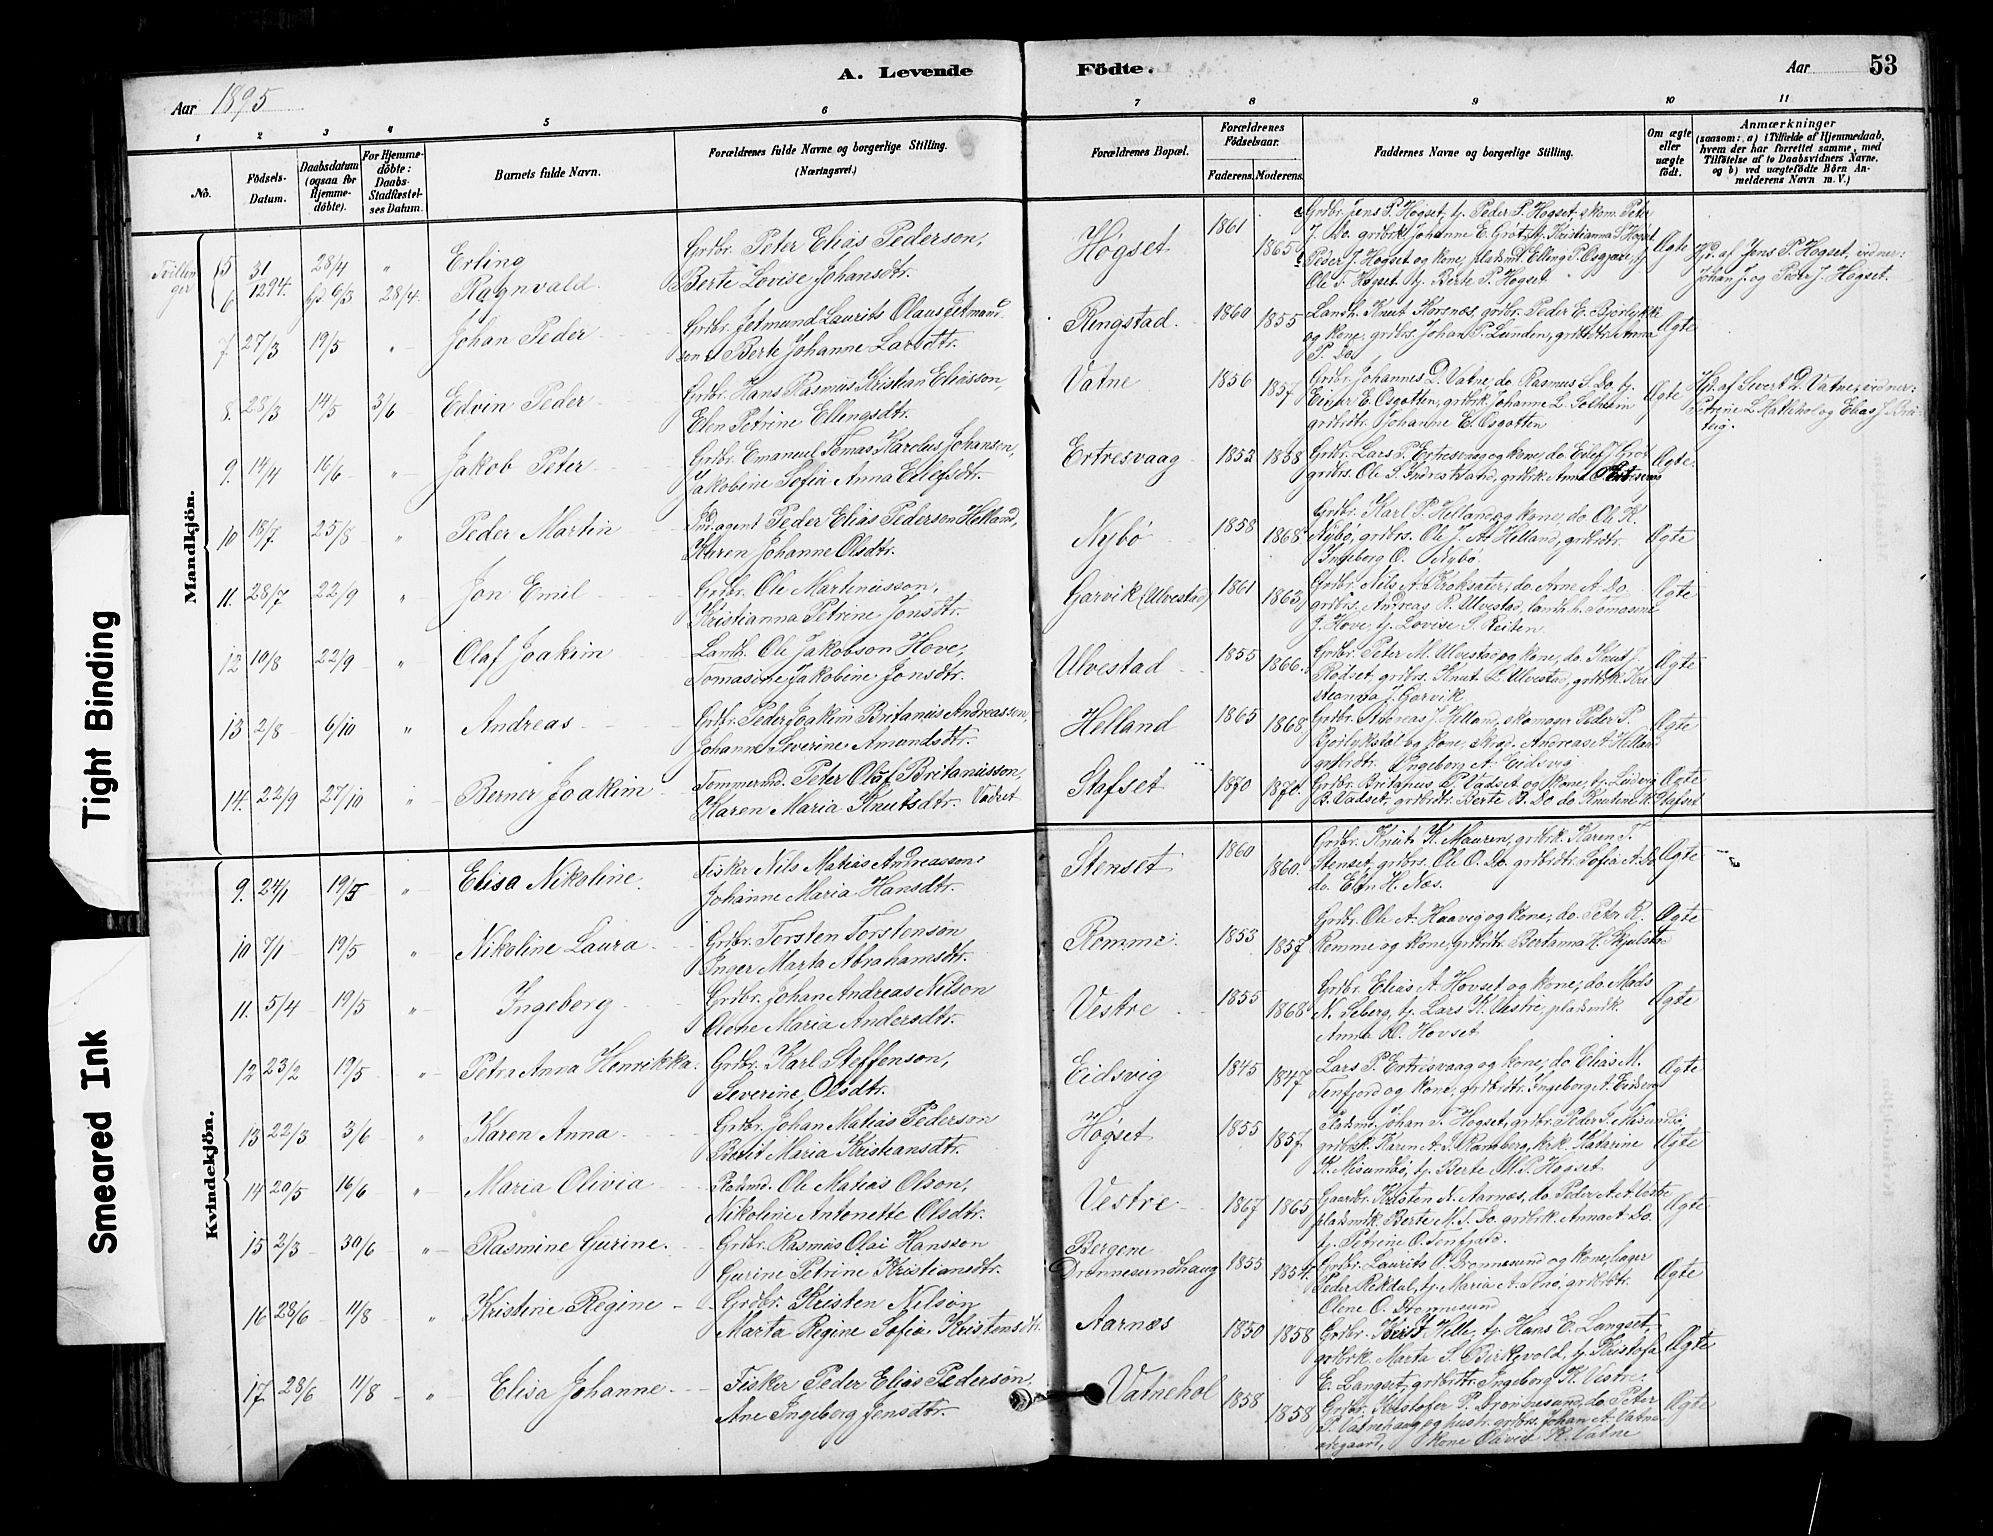 53
A. Levende Födte.
Aar 1895
Aar
1 2 3 4 5 6 7 8 9 10 11
No.
Födsels-Datum.
Daabsdatum (ogsaa for Hjemme-döbte).
For Hjemme-döbte: Daabs-Stadfæstel-ses Datum.
Barnets fulde Navn.
Forældrenes fulde Navne og borgerlige Stilling. (Næringsvei.)
Forældrenes Bopæl.
Forældrenes Födselsaar.
Faderens. Moderens.
Faddernes Navne og borgerlige Stilling.
Om ægte eller uægte födt.
Anmærkninger
(saasom: a) i Tilfælde af Hjemmedaab, hvem der har forrettet samme, med Tilföielse af to Daabsvidners Navne. og b) ved uægtefödte Börn An-melderens Navn m. V.)
Mandkjön.
Tvillinger
5 31/12 94. 28/4 " Erling Grdbr. Peter Elias Pederson, Høgset 1861 1865 Ægte Hjd. af Jens P. Hogset, vidner:
6 6/3 28/4. Ragnvald Berte Lovise Johansdtr. Johan J. og Peder J. Hogset.
Ole T. Hogset, tj. Berte P. Hogset
7. 27/3 19/5 " Johan Peder Grdbr. Jetmund Laurits Olaus Jetmund-
son Berte Johanne Larsdtr. Ringstad. 1860 1855 Landh. Knut Korsnes, grdbr. Peder E. Bjørlykke
og kone, grdbrs. Johan P. Lunden, grdbrdtr. Anna
P. Do. Ægte
8. 28/3 14/5 3/6 Edvin Peder Grdbr. Hans Rasmus Kristian Eliasson,
Elen Petrine Ellingsdtr. Vatne 1856 1857 Grdbr. Johannes D. Vatne, do. Rasmus S. Do. tj.
Einer E. Osgotten, grdbrk. Johanne L. Solheim
grdbrdtr. Johanne E. Osgotten Ægte Hjd. af Sivert D. Vatne, vidner:
9. 14/4 16/6 " Jakob Peter Grdbr. Emanuel Tomas Karolus Johansen,
Jakobine Sofia Anna Eilefsdtr. Ertresvaag 1853 1858 Grdbr. Lars P. Ertresvaag og kone, do. Eilef J. Grøt
Ægte.
10 18/7. 25/8 " Peder Martin agent Peder Elias Pederson Helland,
Karen Johanne Olsdtr. Nybø 1858 1868 Grdbr. Karl P. Helland og kone, do. Ole K.
Nybø, grdbrs. Ole J. A. Helland, grdbrdtr.
Ingeborg O. Nybø Ægte
11. 28/7 22/9 " Jon Emil Grdbr. Ole Martinusson,
Kristianna Petrine Jonsdtr. Garvik (Ulvestad) 1861 1863 Grdbr. Nils A. Kroksæter, do. Arne A. Do.
grdbrs. Andreas R. Ulvestad, landh. h. Tomasine
J. Hove, tj. Lovise S. Reiten. Ægte
12 10/8 22/9 " Olaf Joakim Landh. Ole Jakobson Hove,
Tomasine Jakobine Jonsdtr. Ulvestad 1855 1866. Grdbr. Peter M. Ulvestad og kone, do. Knut J.
Rødset, grdbrs. Knut L. Ulvestad, grdbrk. Kri-
stianna J. Garvik Ægte
13 2/8 6/10 " Andreas Grdbr. Peder Joakim Britanus Andreassen,
Johanne Severine Amundsdtr. Helland 1865 1868 Grdbr. Andreas J. Helland, skomager Peder P.
Bjørlykstøl og kone, Andreas A. Helland
grdbrdtr. Ingeborg A. Eidsvig Ægte
14. 22/9 27/10 " Berner Joakim Tømmermd. Peter Olaf Britanusson,
Karen Maria Knutsdtr. Vadset Stafset 1870 1870. Grdbr. Britanus P. Vadset og kone, tj. Ludvig
B. Vadset, grdbrdtr. Berte B. Do. do. Knutine K. Stafset Ægte
Kvindekjön.
9. 24/1 19/5 " Elisa Nikoline. Fisker Nils Matias Andreasson
Johanne Maria Hansdtr. Stenset 1860 1860. Grdbr. Knut K. Mauren, grdbrk. Karen T.
Stenset, grdbrs. Ole O. Do. grdbrdtr. Sofia A. Do.
do. Elen H. Næs. Ægte
10 7/1 19/5 " Nikoline Laura Grdbr. Torsten Torstenson
Inger Marta Abrahamsdtr. Romme. 1853 1857 Grdbr. Ole A. Haavig og kone, do. Peter K.
Romme og kone, grdbrdtr. Bertanna H. Skjelsta Ægte
11. 5/4 19/5 " Ingeborg Grdbr. Johan Andreas Nilson
Olene Maria Andersdtr. Vestre 1855 1868 Grdbr. Elias A. Hovset og kone, do. Mads
N. Seberg, tj. Lars K. Vestre, pladsmk.
Anna O. Hovset Ægte
12 23/2 19/5 " Petra Anna Henrikka. Grdbr. Karl Steffenson,
Severine Olsdtr. Eidsvig 1845 1847 Lars P. Ertresvaag og kone, do Elias M.
Tenfjord og kone, grdbrdtr. Ingeborg A. Eidsvig Ægte
13 22/3 3/6 " Karen Anna Grdbr. Johan Matias Pederson
Berit Maria Kristiansdtr. Høgset 1855 1857. Pladsmd. Johan T. Hogset, grdbr. Peder S. Misundbø,
grdbrk. Karen A. J. Ramsberg, krk. Katarine
K. Misundbø, tj. Berte M. P. Hogset Ægte
14 20/5 16/6 " Maria Olivia Pladsmd. Ole Matias Olson,
Nikoline Antonette Olsdtr. Vestre 1867 1865 Gaardbr. Kristen N. Aarnæs, do. Peder A. A. Vestre
pladsmdk. Berte M. T. Do. grdbrk. Anna A. Do.
tj. Petrine O. Tenfjord. Ægte
15 2/3 30/6 " Rasmine Gurine. Grdbr. Rasmus Olai Hansson
Gurine Petrine Kristiansdtr. Bergene Dronnesundhaug 1855 1854. Grdbr. Laurits O. Dronnesund og kone,
Peder Rekdal, tj. Maria A. grdbrdtr.
Olene O. Dronnesund Ægte
16 28/6 11/8 " Kristine Regine Grdbr. Kristen Nilson
Marta Regine Sofia Kristensdtr. Aarnæs 1850 1858 Grdbr. Helle, tj. Hans E. Langset,
grdbrk. Marta S. Birkevold, tj. Kristofa
E. Langset, grdbrdtr. Ingeborg K. Vestre. Ægte
17. 28/6 11/8 " Elisa Johanne Fisker Peder Elias Pederson
Ane Ingeborg Jensdtr. Vatnehol 1858 1858 Grdbr. Kristofer P. Dronnesund, do. Peter
P. Vatnehaug og hustr. grdbrs. Johan A. Vatne
ødegaard, kone Olivia K. Vatne Ægte
Tight Binding
Smeared Ink